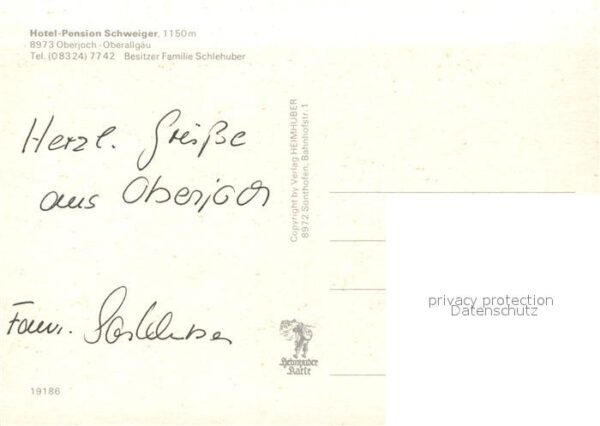 Hotel-Pension Schweiger, 1150 m
8973 Oberjoch - Oberallgäu
Tel. (08324) 7742 Besitzer Familie Schlehuber
Herzl. Grüße
aus Oberjoch
Fam. Schlehuber
19186
Copyright by Verlag HEIMHUBER
8972 Sonthofen, Bahnhofstr. 1
Heimhuber
Karte
privacy protection
Datenschutz